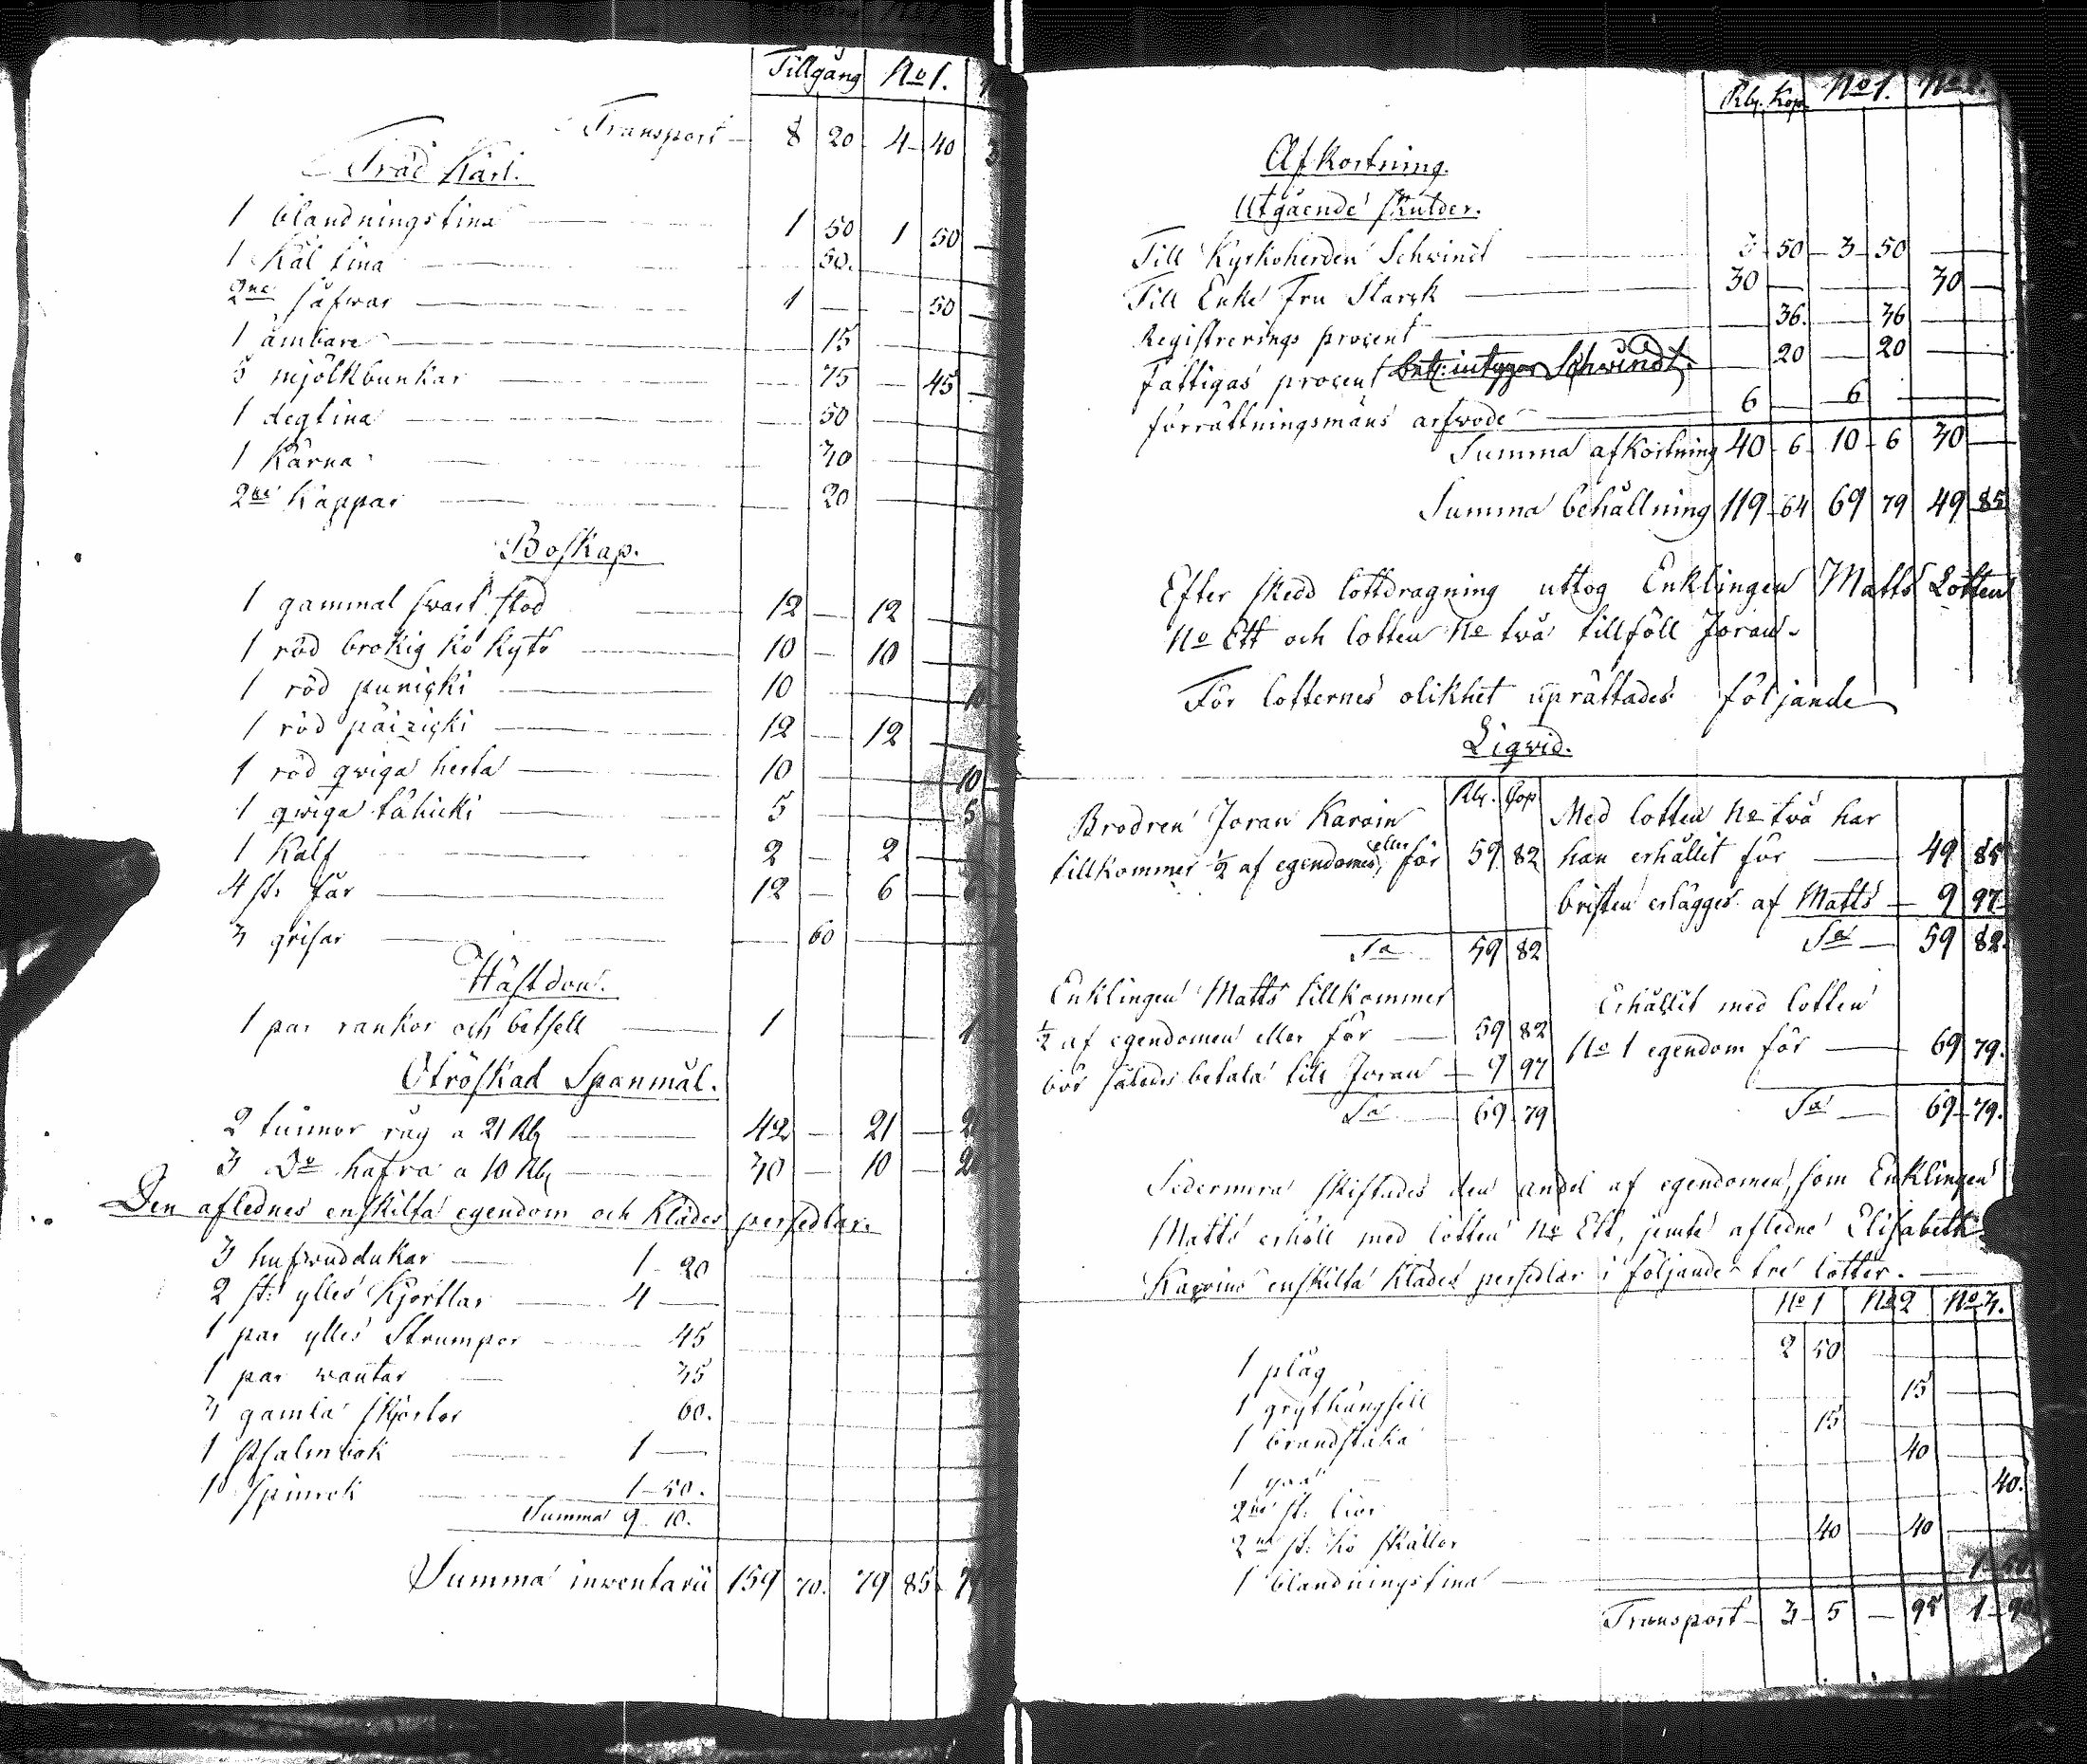 Tillgång No 1.
Transport 8 20 4 40
Träd Kärl.
1 blandningstina 1 50 1 50
1 Kål tina 50.
2ne såfwar 1 — 50
1 ämbare 15
5 mjölkbunkar 75 45
1 degtina 50
1 Kärna 30
2ne Kappar 20
Boskap.
1 gammal swart stod 12 — 12 —
1 röd brokig ko kytö 10 — 10 —
1 röd punicki 10 10
1 röd päizicki 12 — 12 —
1 röd qwiga herta 10 10
1 qwiga tähicki 5 5
1 Kalf 2 — 2 —
4 st. får 12 — 6 —
3 grisar 60
Hästdon.
1 par rankor och betsell 1 1
Otröskad Spanmål.
2 tunnor råg a 21 Rbl 42 — 21 —
3 Do hafra a 10 Rbl 30 — 10 —
Den aflednes enskilta egendom och Klädes persedlar.
3 hufwuddukar 1 20
2 st: ylles Kjortlar 4 —
1 par ylles Strumpor 45
1 par wantar 35
3 gamla skjortor 60.
1 Psalmbok 1 —
1 spinrok 1 50.
Summa 9 10.
Summa inventarii 159 70. 79 85
Rbl. Kop. No 1. No 2.
Afkortning.
Utgående skulder.
Till Kyrkoherden Schvindt 3 50 3 50
Till Enke Fru Starck 30 — 30 —
Registrerings procent 36. 36
Fattigas procent intygar Schvindt. 20 20
förrättningsmäns arfwode 6 — 6
Summa afkortning 40 6 10 6 30 —
Summa behållning 119 64 69 79 49 85
Efter skedd lottdragning uttog Enklingen Matts Lotten
No Ett och lotten No två tillföll Joran.
För lotternes olikhet uprättades följande
Liqvid.
Rbl. Cop
Brodren Joran Karvin
tillkommer ½ af egendomen, eller för 59 82
Sa 59 82
Med lotten No två har
han erhållit för 49 85
bristen erlägges af Matts 9 97
Sa 59 82.
Enklingen Matts tillkommer
½ af egendomen eller för 59 82
bör således betala till Joran 9 97
Sa 69 79
Erhållit med lotten
No 1 egendom för 69 79.
Sa 69 79.
Sedermera skiftades den andel af egendomen, som Enklingen
Matts erhöll med lotten No Ett, jemte aflednе Elisabeth
Karvins enskilta Klädes persedlar i följande tre lotter.
No 1 No 2 No 3.
1 plåg 2 50
1 grythängsell 15
1 brandstaka 15
1 40
2ne st. liar 40.
2ne st. ko skällor 40 40
1 blandningstina 1 50
Transport 3 5 — 95 1 90